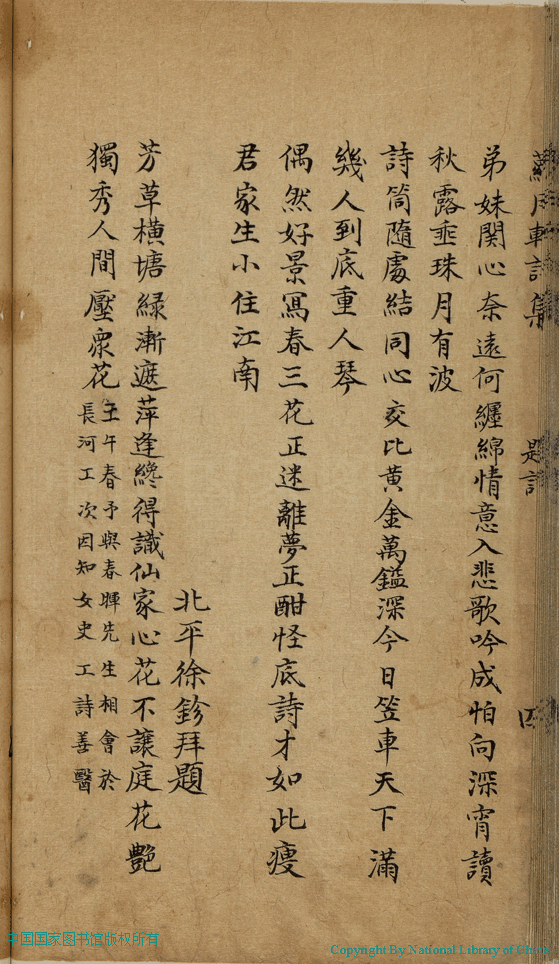 蘚月軒詩集 題詞 四
弟妹関心奈遠何纏綿情意入悲歌吟成怕向深宵讀
秋露垂珠月有波
詩筒隨處結同心交比黄金萬鎰深今日笠車天下滿
幾人到底重人琴
偶然好景寫春三花正迷離夢正酣怪底詩才如此瘦
君家生小住江南
北平徐鉁拜題
芳草橫塘緑漸遮萍逢纔得識仙家心花不讓庭花艷
獨秀人間壓衆花
壬午春予與春暉先生相會於
長河工次因知女史工詩善醫
中国国家图书馆版权所有
Copyright By National Library of China